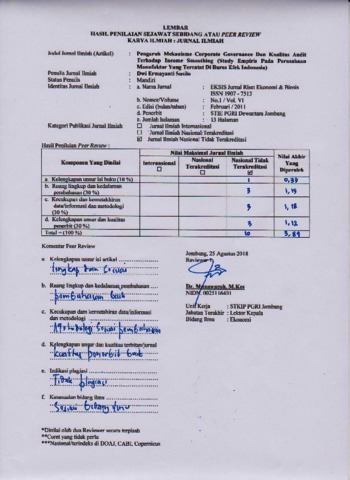 LEMBAR
HASIL PENILAIAN SEJAWAT SEBIDANG ATAU PEER REVIEW
KARYA ILMIAH : JURNAL ILMIAH
Judul Jurnal Ilmiah (Artikel) : Pengaruh Mekanisme Corporate Governance Dan Kualitas Audit
Terhadap Income Smoothing (Study Empiris Pada Perusahaan
Manufaktur Yang Tercatat Di Bursa Efek Indonesia)
Penulis Jurnal Ilmiah : Dwi Ermayanti Susilo
Status Penulis : Mandiri
Identitas Jurnal Ilmiah : a. Nama Jurnal : EKSIS Jurnal Riset Ekonomi & Bisnis
ISSN 1907 - 7513
b. Nomor/Volume : No.1 / Vol. VI
c. Edisi (bulan/tahun) : Februari / 2011
d. Penerbit : STIE PGRI Dewantara Jombang
e. Jumlah halaman : 13 Halaman
Kategori Publikasi Jurnal Ilmiah : ☐ Jurnal Ilmiah Internasional
☐ Jurnal Ilmiah Nasional Terakreditasi
☑ Jurnal Ilmiah Nasional Tidak Terakreditasi
Hasil Penilaian Peer Review :
Komponen Yang Dinilai
Nilai Maksimal Jurnal Ilmiah
Internasional ☐
Nasional Terakreditasi ☐
Nasional Tidak Terakreditasi ☑
Nilai Akhir Yang Diperoleh
a. Kelengkapan unsur isi buku (10 %) 1
b. Ruang lingkup dan kedalaman pembahasan (30 %) 3
c. Kecukupan dan kemutakhiran data/informasi dan metodologi (30 %) 3
d. Kelengkapan unsur dan kualitas penerbit (30 %) 3 1,12
Total = (100 %)
Komentar Peer Review
Jombang, 25 Agustus 2018
Reviewer
a. Kelengkapan unsur isi artikel
lengkap dan sesuai
b. Ruang lingkup dan kedalaman pembahasan
pembahasan baik
Dr. Munawaroh, M.Kes
c. Kecukupan dan kemutakhiran data/informasi
dan metodologi
Metodologi sesuai pembahasan
Unit Kerja : STKIP PGRI Jombang
Jabatan Terakhir : Lektor Kepala
Bidang Ilmu : Ekonomi
d. Kelengkapan unsur dan kualitas terbitan/jurnal
kualitas penerbit baik
e. Indikasi plagiasi
Tidak plagiasi
f. Kesesuaian bidang ilmu
Sesuai bidang ilmu
*Dinilai oleh dua Reviewer secara terpisah
**Coret yang tidak perlu
***Nasional/terindeks di DOAJ, CABI, Copernicus